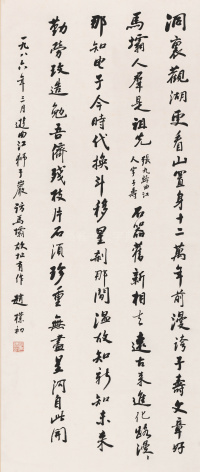 洞裏觀湖更看山置身十二萬年前漫誇子壽文章好
馬壩人群是祖先 張九齡曲江人字子壽 石器舊新相去遠古來進化路漫漫
那知電子今時代換斗移星剎那間溫故知新知未來
勤勞改造勉吾儕殘枝片石須珍重無盡星河自此開
一九八六年三月遊曲江獅子巖訪馬壩故址有作 趙樸初